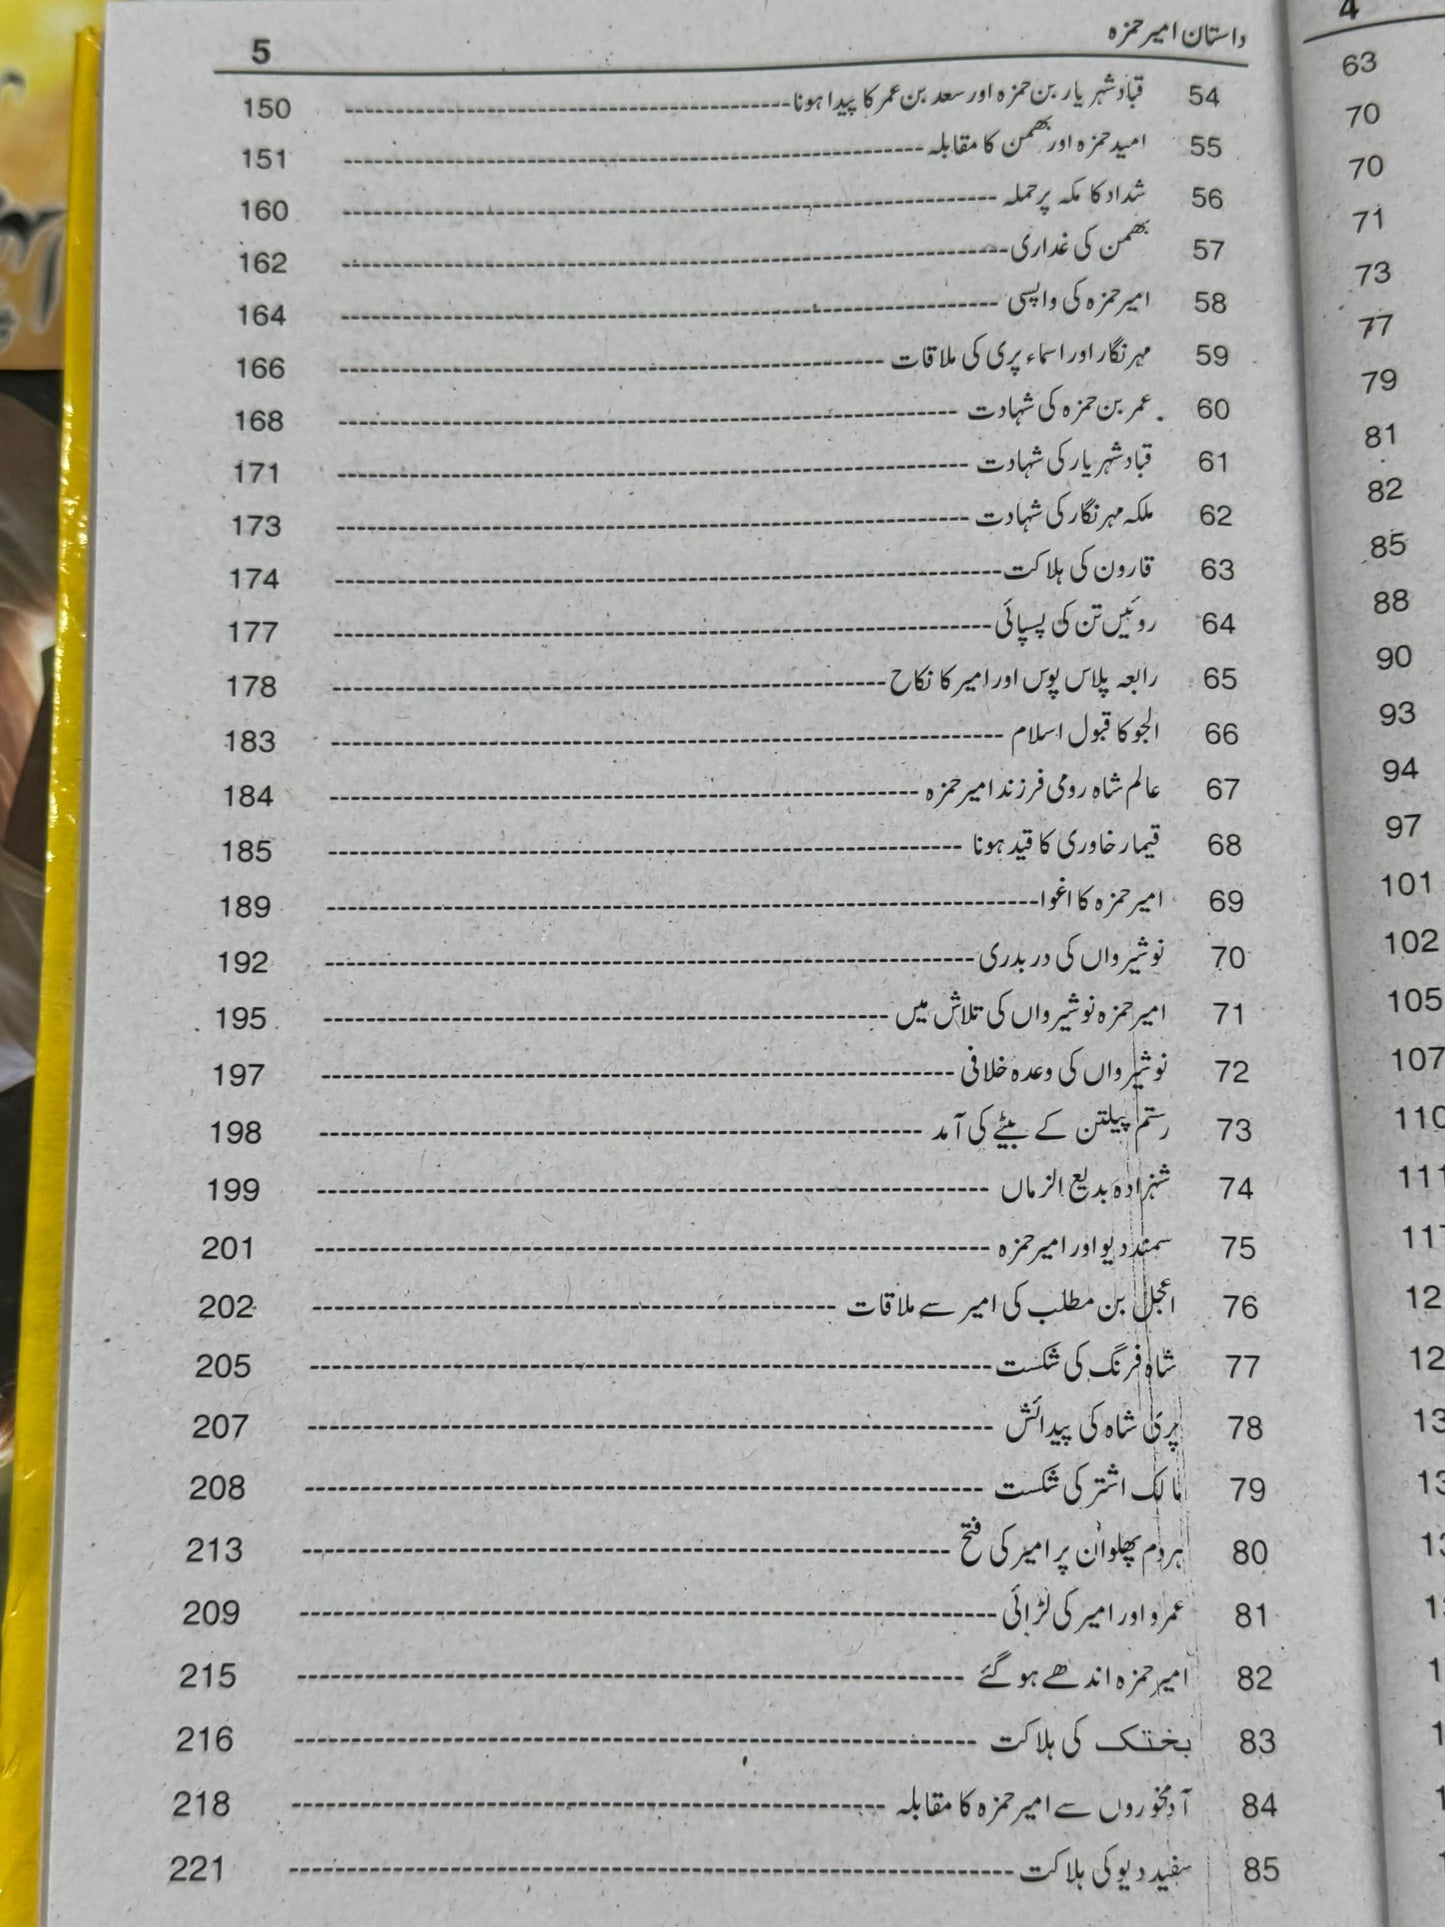 داستان امیر حمزہ 5
54 قباد شہر یار بن حمزہ اور سعد بن عمر کا پیدا ہونا 150
55 امید حمزہ اور بھمن کا مقابلہ 151
56 شداد کا مکہ پر حملہ 160
57 بھمن کی غداری 162
58 امیر حمزہ کی واپسی 164
59 مہر نگار اور اسماء پری کی ملاقات 166
60 عمر بن حمزہ کی شہادت 168
61 قباد شہر یار کی شہادت 171
62 ملکہ مہر نگار کی شہادت 173
63 قارون کی ہلاکت 174
64 روئیں تن کی پسپائی 177
65 رابعہ پلاس پوس اور امیر کا نکاح 178
66 الجو کا قبول اسلام 183
67 عالم شاہ رومی فرزند امیر حمزہ 184
68 قیمار خاوری کا قید ہونا 185
69 امیر حمزہ کا اغوا 189
70 نوشیرواں کی در بدری 192
71 امیر حمزہ نوشیرواں کی تلاش میں 195
72 نوشیرواں کی وعدہ خلافی 197
73 رستم پیلتن کے بیٹے کی آمد 198
74 شہزادہ بدیع الزماں 199
75 سمند دیو اور امیر حمزہ 201
76 اعجل بن مطلب کی امیر سے ملاقات 202
77 شاہ فرنگ کی شکست 205
78 پری شاہ کی پیدائش 207
79 مالک اشتر کی شکست 208
80 ہردم پھلوان پر امیر کی فتح 213
81 عمرو اور امیر کی لڑائی 209
82 امیر حمزہ اندھے ہو گئے 215
83 بختک کی ہلاکت 216
84 آدمخوروں سے امیر حمزہ کا مقابلہ 218
85 سفید دیو کی ہلاکت 221
4
63
70
70
71
73
77
79
81
82
85
88
90
93
94
97
101
102
105
107